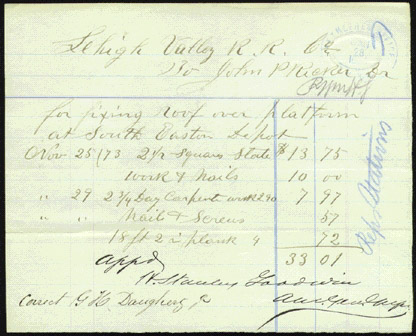 Lehigh Valley R. R. Co
To John P Ricker Dr
for fixing roof over platform
at South Easton Depot
Nov 25/73 2 1/2 Square Slate $ 13 75
work & nails 10 00
" 29 2 3/4 Day Carpent work 2.90 7 97
" " Nails & Screws 57
18 ft 2 in plank 4 72
33 01
appd
H. Stanley Goodwin
Correct G H Daugherty Jr
Reps Stations